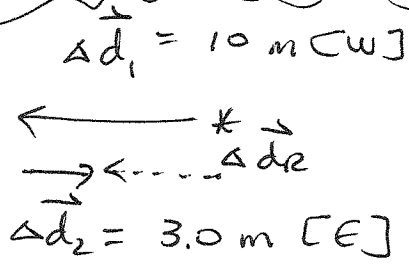 Δd⃗₁ = 10 m [W]
* Δd⃗R
Δd⃗₂ = 3.0 m [E]